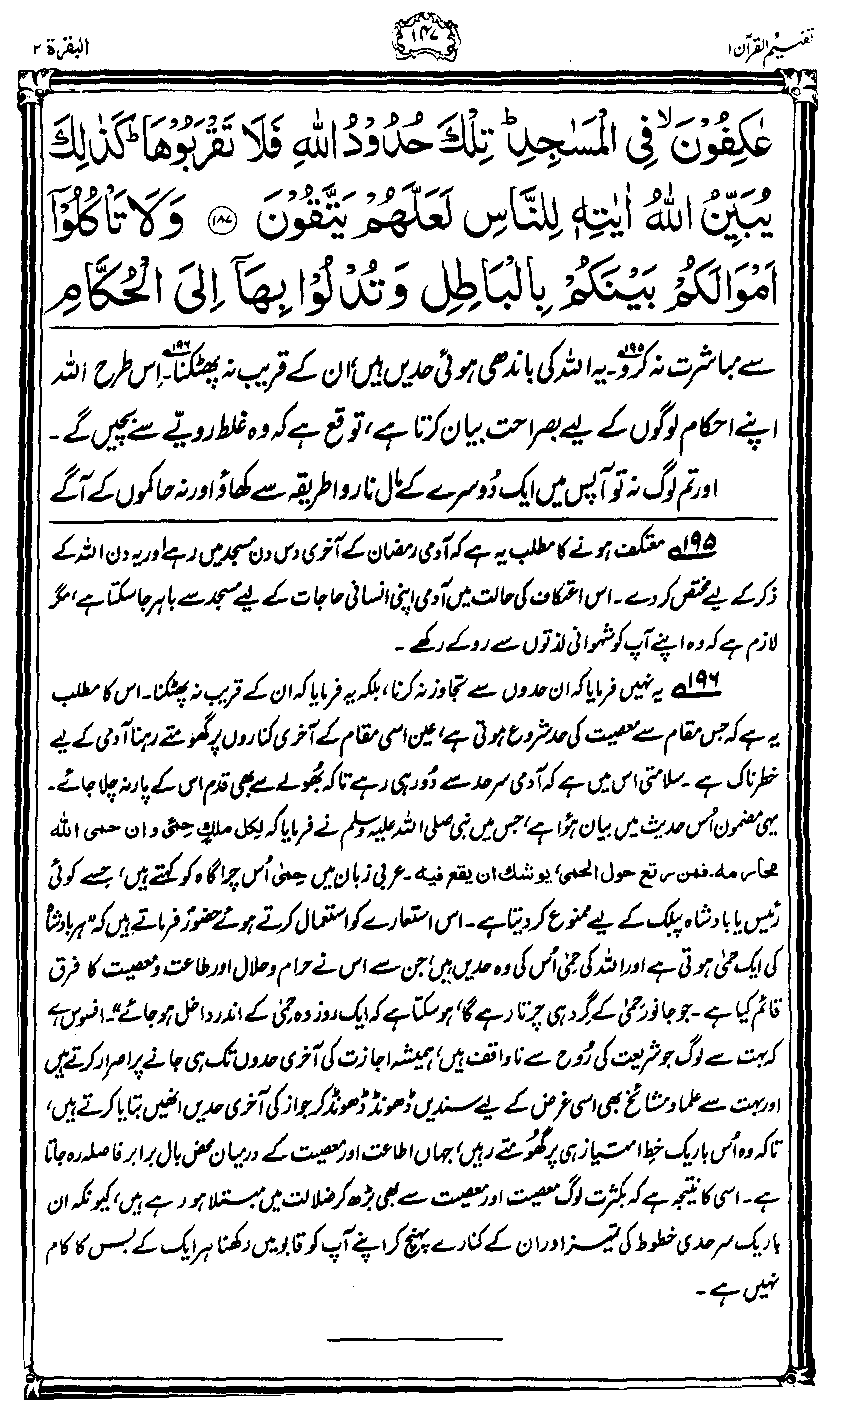 تفہیم القرآن ۱
۱۴۷
البقرۃ ۲
عٰكِفُوْنَ ۙ فِي الْمَسٰجِدِ ؕ تِلْكَ حُدُوْدُ اللّٰهِ فَلَا تَقْرَبُوْهَا ؕ كَذٰلِكَ
يُبَيِّنُ اللّٰهُ اٰيٰتِهٖ لِلنَّاسِ لَعَلَّهُمْ يَتَّقُوْنَ ﴿۱۸۷﴾ وَلَا تَاْكُلُوْٓا
اَمْوَالَكُمْ بَيْنَكُمْ بِالْبَاطِلِ وَتُدْلُوْا بِهَآ اِلَى الْحُكَّامِ
سے مباشرت نہ کرو۔۱۹۵ یہ اللہ کی باندھی ہوئی حدیں ہیں، ان کے قریب نہ پھٹکنا۔۱۹۶ اِس طرح اللہ
اپنے احکام لوگوں کے لیے بصراحت بیان کرتا ہے، توقع ہے کہ وہ غلط رویّے سے بچیں گے۔
اور تم لوگ نہ تو آپس میں ایک دُوسرے کے مال ناروا طریقہ سے کھاؤ اور نہ حاکموں کے آگے
۱۹۵ معتکف ہونے کا مطلب یہ ہے کہ آدمی رمضان کے آخری دس دن مسجد میں رہے اور یہ دن اللہ کے
ذکر کے لیے مختص کر دے۔ اس اعتکاف کی حالت میں آدمی اپنی انسانی حاجات کے لیے مسجد سے باہر جا سکتا ہے، مگر
لازم ہے کہ وہ اپنے آپ کو شہوانی لذّتوں سے روکے رکھے۔
۱۹۶ یہ نہیں فرمایا کہ ان حدوں سے تجاوز نہ کرنا، بلکہ یہ فرمایا کہ ان کے قریب نہ پھٹکنا۔ اس کا مطلب
یہ ہے کہ جس مقام سے معصیت کی حد شروع ہوتی ہے، عین اسی مقام کے آخری کناروں پر گھومتے رہنا آدمی کے لیے
خطرناک ہے۔ سلامتی اس میں ہے کہ آدمی سرحد سے دُور ہی رہے تاکہ بھُولے سے بھی قدم اس کے پار نہ چلا جائے۔
یہی مضمون اُس حدیث میں بیان ہوا ہے، جس میں نبی صلی اللہ علیہ وسلم نے فرمایا کہ لِکل ملكٍ حِمًی و ان حمی اللہ
محارمه۔ فمن رتع حول الحمیٰ، یوشك ان یقع فیه۔ عربی زبان میں حِمیٰ اُس چراگاہ کو کہتے ہیں، جسے کوئی
رئیس یا بادشاہ پبلک کے لیے ممنوع کر دیتا ہے۔ اس استعارے کو استعمال کرتے ہوئے حضورؐ فرماتے ہیں کہ ”ہر بادشاہ
کی ایک حِمیٰ ہوتی ہے اور اللہ کی حِمیٰ اُس کی وہ حدیں ہیں، جن سے اس نے حرام و حلال اور طاعت و معصیت کا فرق
قائم کیا ہے۔ جو جانور حِمیٰ کے گرد ہی چرتا رہے گا، ہو سکتا ہے کہ ایک روز وہ حِمیٰ کے اندر داخل ہو جائے“۔ افسوس ہے
کہ بہت سے لوگ جو شریعت کی رُوح سے ناواقف ہیں، ہمیشہ اجازت کی آخری حدوں تک ہی جانے پر اصرار کرتے ہیں
اور بہت سے علماء و مشائخ بھی اسی غرض کے لیے سندیں ڈھونڈ ڈھونڈ کر جواز کی آخری حدیں انھیں بتایا کرتے ہیں،
تاکہ وہ اُس باریک خطِ امتیاز ہی پر گھُومتے رہیں، جہاں اطاعت اور معصیت کے درمیان محض بال برابر فاصلہ رہ جاتا
ہے۔ اسی کا نتیجہ ہے کہ بکثرت لوگ معصیت اور معصیت سے بھی بڑھ کر ضلالت میں مبتلا ہو رہے ہیں، کیونکہ ان
باریک سرحدی خطوط کی تمیز اور ان کے کنارے پہنچ کر اپنے آپ کو قابو میں رکھنا ہر ایک کے بس کا کام
نہیں ہے۔